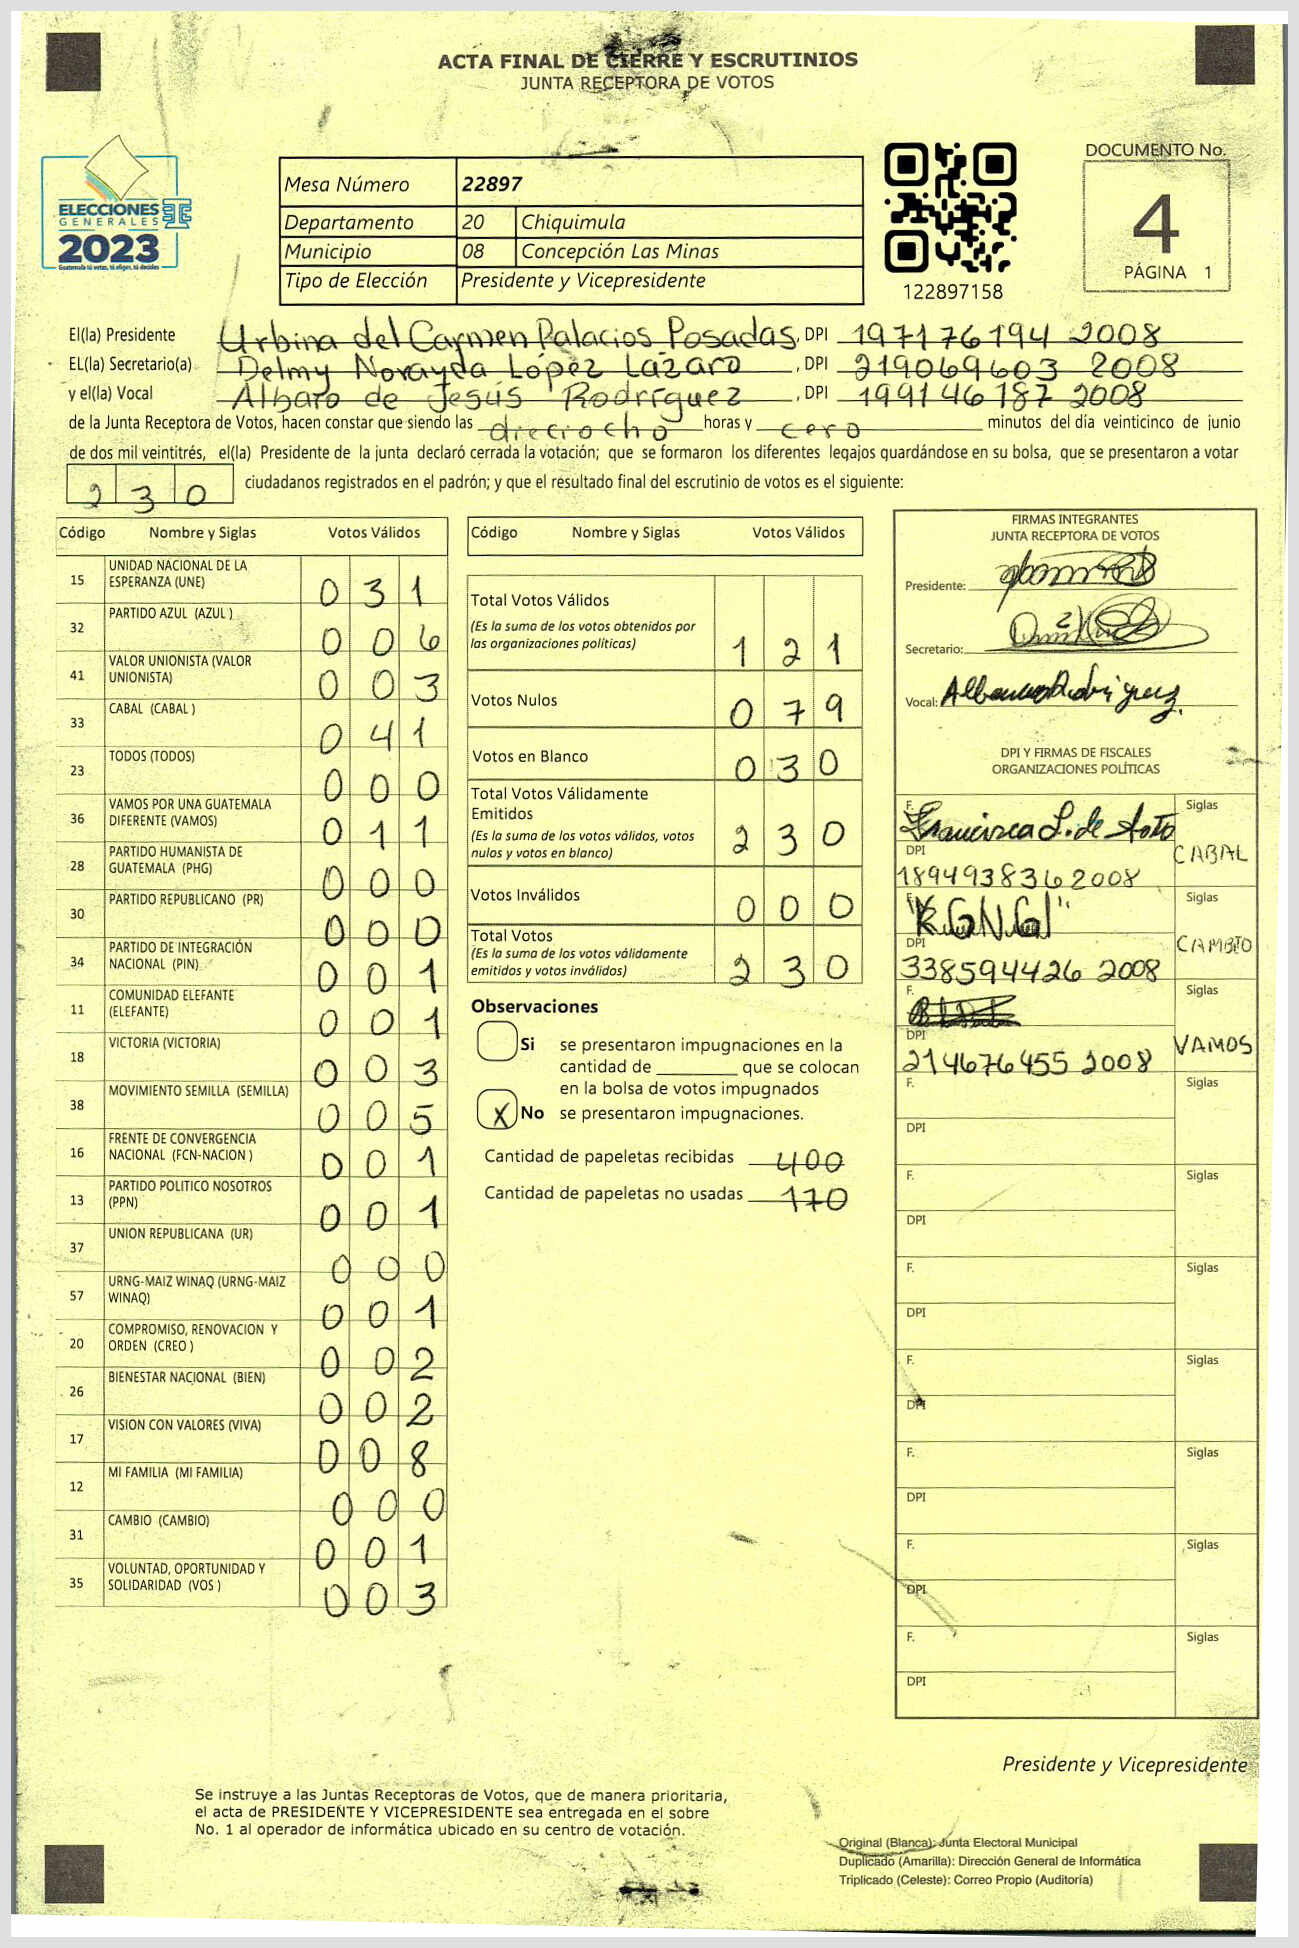 ACTA FINAL DE CIERRE Y ESCRUTINIOS
JUNTA RECEPTORA DE VOTOS
ELECCIONES
GENERALES
2023
Guatemala tú votas, tú eliges, tú decides
Mesa Número 22897
Departamento 20 Chiquimula
Municipio 08 Concepción Las Minas
Tipo de Elección Presidente y Vicepresidente
122897158
DOCUMENTO No.
4
PÁGINA 1
El(la) Presidente Urbina del Carmen Palacios Posadas, DPI 197176194 2008
EL(la) Secretario(a) Delmy Norayda López Lázaro, DPI 219069603 2008
y el(la) Vocal Albaro de Jesús Rodríguez, DPI 199146187 2008
de la Junta Receptora de Votos, hacen constar que siendo las dieciocho horas y cero minutos del día veinticinco de junio
de dos mil veintitrés, el(la) Presidente de la junta declaró cerrada la votación; que se formaron los diferentes legajos guardándose en su bolsa, que se presentaron a votar
230 ciudadanos registrados en el padrón; y que el resultado final del escrutinio de votos es el siguiente:
Código Nombre y Siglas Votos Válidos
15 UNIDAD NACIONAL DE LA ESPERANZA (UNE) 0 3 1
32 PARTIDO AZUL (AZUL ) 0 0 6
41 VALOR UNIONISTA (VALOR UNIONISTA) 0 0 3
33 CABAL (CABAL ) 0 4 1
23 TODOS (TODOS) 0 0 0
36 VAMOS POR UNA GUATEMALA DIFERENTE (VAMOS) 0 1 1
28 PARTIDO HUMANISTA DE GUATEMALA (PHG) 0 0 0
30 PARTIDO REPUBLICANO (PR) 0 0 0
34 PARTIDO DE INTEGRACIÓN NACIONAL (PIN) 0 0 1
11 COMUNIDAD ELEFANTE (ELEFANTE) 0 0 1
18 VICTORIA (VICTORIA) 0 0 3
38 MOVIMIENTO SEMILLA (SEMILLA) 0 0 5
16 FRENTE DE CONVERGENCIA NACIONAL (FCN-NACION ) 0 0 1
13 PARTIDO POLITICO NOSOTROS (PPN) 0 0 1
37 UNION REPUBLICANA (UR) 0 0 0
57 URNG-MAIZ WINAQ (URNG-MAIZ WINAQ) 0 0 1
20 COMPROMISO, RENOVACION Y ORDEN (CREO ) 0 0 2
26 BIENESTAR NACIONAL (BIEN) 0 0 2
17 VISION CON VALORES (VIVA) 0 0 8
12 MI FAMILIA (MI FAMILIA) 0 0 0
31 CAMBIO (CAMBIO) 0 0 1
35 VOLUNTAD, OPORTUNIDAD Y SOLIDARIDAD (VOS ) 0 0 3
Código Nombre y Siglas Votos Válidos
Total Votos Válidos 1 2 1
(Es la suma de los votos obtenidos por
las organizaciones políticas)
Votos Nulos 0 7 9
Votos en Blanco 0 3 0
Total Votos Válidamente
Emitidos 2 3 0
(Es la suma de los votos válidos, votos
nulos y votos en blanco)
Votos Inválidos 0 0 0
Total Votos 2 3 0
(Es la suma de los votos válidamente
emitidos y votos inválidos)
Observaciones
Si se presentaron impugnaciones en la
cantidad de ________ que se colocan
en la bolsa de votos impugnados
X No se presentaron impugnaciones.
Cantidad de papeletas recibidas 400
Cantidad de papeletas no usadas 170
FIRMAS INTEGRANTES
JUNTA RECEPTORA DE VOTOS
Presidente:
Secretario:
Vocal:
DPI Y FIRMAS DE FISCALES
ORGANIZACIONES POLÍTICAS
F. Francisca L. de Soto Siglas
DPI CABAL
189493836 2008
F. Siglas
DPI CAMBIO
338594426 2008
F. Siglas
DPI VAMOS
214676455 2008
F. Siglas
DPI
F. Siglas
DPI
F. Siglas
DPI
F. Siglas
DPI
F. Siglas
DPI
F. Siglas
DPI
F. Siglas
DPI
Presidente y Vicepresidente
Se instruye a las Juntas Receptoras de Votos, que de manera prioritaria,
el acta de PRESIDENTE Y VICEPRESIDENTE sea entregada en el sobre
No. 1 al operador de informática ubicado en su centro de votación.
Original (Blanca): Junta Electoral Municipal
Duplicado (Amarilla): Dirección General de Informática
Triplicado (Celeste): Correo Propio (Auditoría)